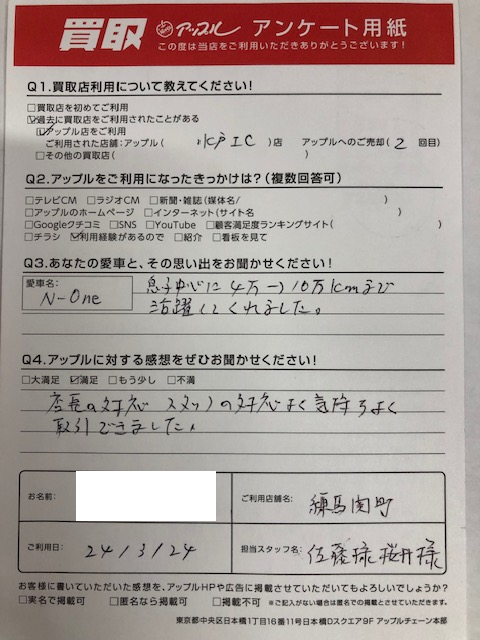 買取 アップル アンケート用紙
この度は当店をご利用いただきありがとうございます！
Q1.買取店利用について教えてください！
□買取店を初めてご利用
☑過去に買取店をご利用されたことがある
☑アップル店をご利用
ご利用された店舗：アップル( 水戸IC )店 アップルへのご売却( 2 回目)
□その他の買取店( )
Q2.アップルをご利用になったきっかけは？(複数回答可)
□テレビCM □ラジオCM □新聞・雑誌(媒体名/ )
□アップルのホームページ □インターネット(サイト名 )
□Googleクチコミ □SNS □YouTube □顧客満足度ランキングサイト( )
□チラシ ☑利用経験があるので □紹介 □看板を見て
Q3.あなたの愛車と、その思い出をお聞かせください！
愛車名：
N-One
息子中心に4万→10万kmまで
活躍してくれました。
Q4.アップルに対する感想をぜひお聞かせください！
□大満足 ☑満足 □もう少し □不満
店長の対応 スタッフの対応よく気持ちよく
取引できました。
お名前：
ご利用店舗名： 練馬関町
ご利用日： 24/3/24
担当スタッフ名： 佐藤様 桜井様
お客様に書いていただいた感想を、アップルHPや広告に掲載させていただいてもよろしいでしょうか？
□実名で掲載可 □匿名なら掲載可 □掲載不可 ※ご記入がない場合は匿名での掲載とさせていただきます。
東京都中央区日本橋1丁目16番11号日本橋Dスクエア9F アップルチェーン本部